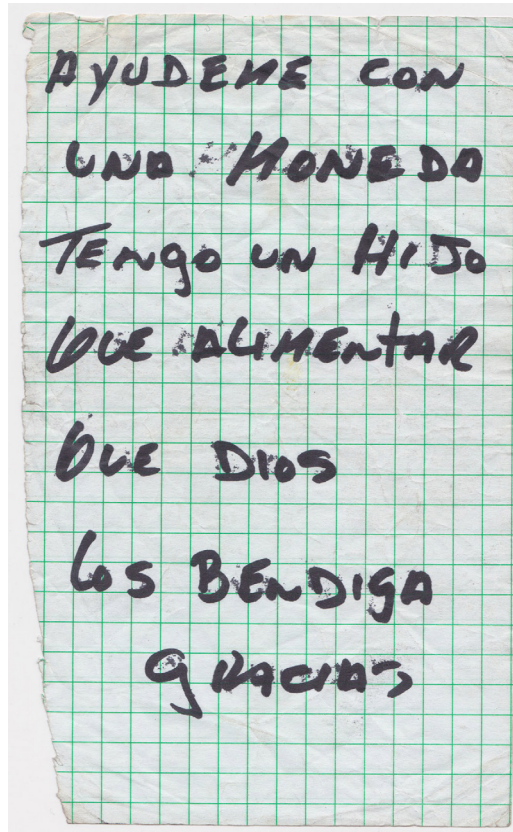 AYUDEME CON
UNA MONEDA
TENGO UN HIJO
QUE ALIMENTAR
QUE DIOS
LOS BENDIGA
GRACIAS